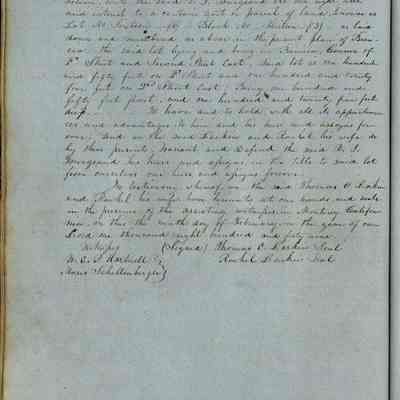 unto the said
and interest to a certain Lot or parcel of land known as
Lot No. Sixteen (16) in Block No. thirteen (13) as laid
down and numbered as above in the present plan of Beni-
cia the said lot lying and being in Benicia, Corner of
D Street and Second Street East, said lot is one hundred
and fifty feet on D Street and one hundred and twenty
five feet on 2d Street East, Being one hundred and
fifty feet front, and one hundred and twenty five feet
deep. To have and to hold with all its appurtenan-
ces and advantages to him and his heirs and assigns for-
ever, And we the said Larkin and Rachel his wife do
by these presents, Warrant and Defend the said
his heirs and assigns in the title to said lot
from ourselves our heirs and assigns forever.
In testimony whereof we the said Thomas O. Larkin
and Rachel his wife have hereunto set our hands and seals
in the presence of the assisting witnesses in Monterey Califor-
nia, on this the ninth day of February in the year of our
Lord one thousand eight hundred and forty nine
Witness (Signed) Thomas O. Larkin Seal
W. E. P. Hartnell Rachel Larkin Seal
Schallenberger